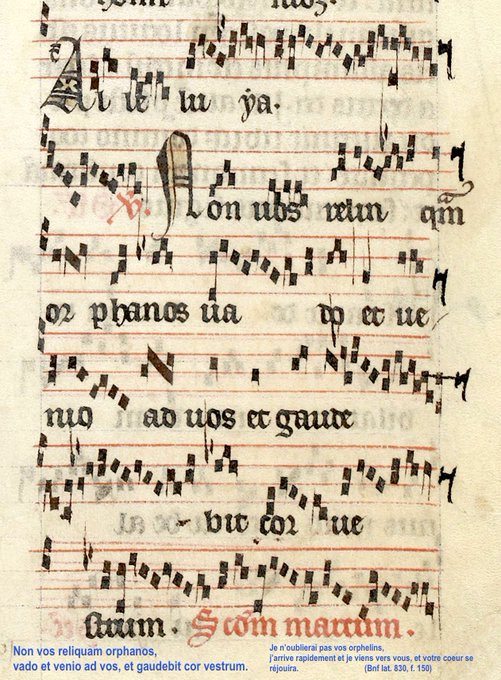 Al le lu ya.
℣. Non uos relin qm̃
or phanos ua do et ue
nio ad uos et gaude
- bit cor ue
strum. Scdm marcum.
Non vos reliquam orphanos,
vado et venio ad vos, et gaudebit cor vestrum.
Je n'oublierai pas vos orphelins,
j'arrive rapidement et je viens vers vous, et votre coeur se
réjouira. (Bnf lat. 830, f. 150)